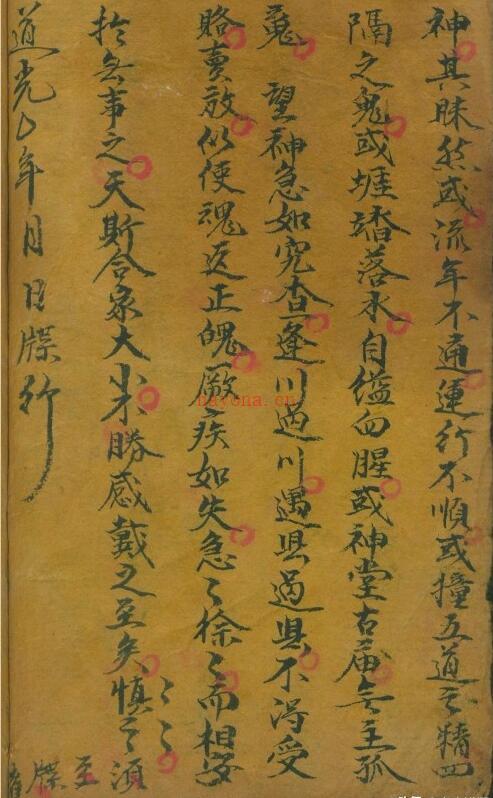 神其昧然或流年不通運行不順或撞五道之精四
隔之鬼或墟墦落水自縊血腥或神堂古庙無主孤
魂望神急如究查逢川過川遇県過県不得受
賂賣放似使魂返正魄厥疾如失急〻徐〻而相安
於無事之天斯合家大小不勝感戴之至矣慎之〻〻須至牒者
道光 年 月 日牒行
nayona.cn